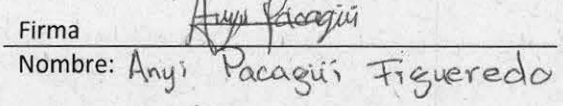 Firma Anyi Pacagüi
Nombre: Anyi Pacagüi Figueredo